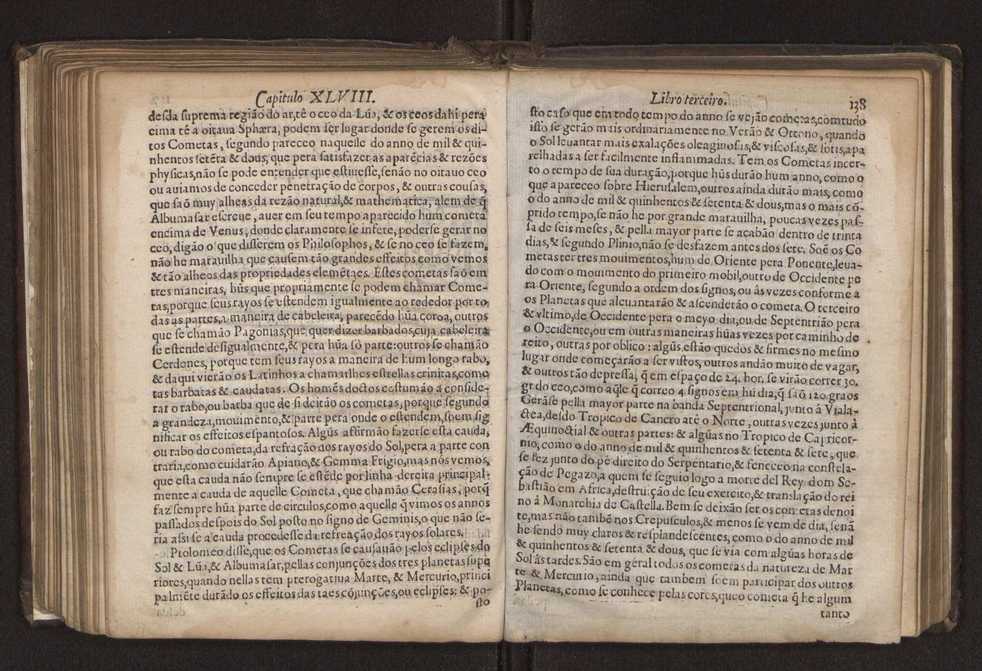 Capitulo XLVIII.
desda suprema região do ar, tè o ceo da Lũa, & os ceos dahi pera
cima tè a oitaua Sphæra, podem ser lugar donde se gerem os di-
tos Cometas, segundo pareceo naquelle do anno de mil & qui-
nhentos setẽta & dous, que pera satisfazer as aparẽcias & rezões
physicas, não se pode entender que estiuesse, senão no oitauo ceo
ou auiamos de conceder penetração de corpos, & outras cousas,
que saõ muy alheas da rezão natural, & mathematica, alem de q̃
Albumasar escreue, auer em seu tempo aparecido hum cometa
encima de Venus, donde claramente se infere, poderse gerar no
ceo, digão o que disserem os Philosophos, & se no ceo se fazem,
não he marauilha que causem tão grandes effeitos como vemos
& tão alheos das propriedades elemẽtaes. Estes cometas saõ em
tres maneiras, hũs que propriamente se podem chamar Come-
tas, porque seus rayos se estendem igualmente ao rededor por to-
das as partes, a maneira de cabeleira, parecẽdo hũa coroa, outros
que se chamão Pagonias, que quer dizer barbados, cuja cabeleira
se estende desigualmente, & pera hũa só parte: outros se chamão
Cerdones, porque tem seus rayos a maneira de hum longo rabo,
& daqui vierão os Latinhos a chamarlhes estrellas crinitas, come
tas barbatas & caudatas. Os homẽs doctos costumão a conside-
rar o rabo, ou barba que de si deitão os cometas, porque segundo
a grandeza, mouimento, & parte pera onde o estendem, soem sig
nificar os effeitos espantosos. Algũs affirmão fazerse esta cauda,
ou rabo do cometa, da refração dos rayos do Sol, pera a parte con
traria, como cuidarão Apiano, & Gemma Frigio, mas nós vemos,
que esta cauda não sempre se estẽde por linha dereita principal-
mente a cauda de aquelle Cometa, que chamão Cerasias, porq̃
faz sempre hũa parte de circulos, como aquelle q̃ vimos os annos
passados despois do Sol posto no signo de Geminis, o que não se-
ria assi se a cauda procedesse da refreação dos rayos solares.
Ptolomeo disse, que os Cometas se causauão pelos eclipses do
Sol & Lũa, & Albumasar, pellas conjunções dos tres planetas supe
riores, quando nellas tem prerogatiua Marte, & Mercurio, princi
palmẽte durãdo os effeitos das taes cõjunções, ou eclipses: & po-
sto
Libro terceiro. 138
sto caso que em todo tempo do anno se vejão cometas, comtudo
isto se gerão mais ordinariamente no Verão & Otono, quando
o Sol leuantar mais exalações oleaginosas, & viscosas, & sotis, apa
relhadas a ser facilmente inflammadas. Tem os Cometas incer-
to o tempo de sua duração, porque hũs durão hum anno, como o
que apareceo sobre Hierusalem, outros ainda durão mais, como
o do anno de mil & quinhentos & setenta & dous, mas o mais cõ-
prido tempo, se não he por grande marauilha, poucas vezes pas-
sa de seis meses, & pella mayor parte se acabão dentro de trinta
dias, & segundo Plinio, não se desfazem antes dos sete. Soẽ os Co
metas ter tres mouimentos, hum de Oriente pera Ponente, leua-
do com o mouimento do primeiro mobil, outro de Occidente pe
ra Oriente, segundo a ordem dos signos, ou ás vezes conforme a
os Planetas que aleuantarão & ascenderão o cometa. O terceiro
& vltimo, de Occidente pera o meyo dia, ou de Septentrião pera
o Occidente, ou em outras maneiras hũas vezes por caminho de
reito, outras por oblico: algũs, estão quedos & firmes no mesmo
lugar onde começarão a ser vistos, outros andão muito de vagar,
& outros tão depressa, q̃ em espaço de 24. hor. se virão correr 30.
gr. do ceo, como aq̃le q̃ correo 4. signos em hũ dia, q̃ saõ 120. graos
Gerãse pella mayor parte na banda Septentrional, junto â Viala-
ctea, desdo Tropico de Cancro até o Norte, outras vezes junto à
Æquinoctial & outras partes: & algũas no Tropico de Capricor-
nio, como o do anno de mil & quinhentos & setenta & sete, que
se fez junto do pè direito do Serpentario, & feneceo na constela-
ção de Pegazo, a quem se seguio logo a morte del Rey dom Se-
bastião em Africa, destruição de seu exercito, & translação do rei
no à Monarchia de Castella. Bem se deixão ser os cometas denoi
te, mas não tambẽ nos Crepusculos, & menos se vem de dia, senã
he sendo muy claros & resplandescẽtes, como o do anno de mil
& quinhentos & setenta & dous, que se via com algũas horas de
Sol às tardes. São em geral todos os cometas da natureza de Mar
te & Mercurio, ainda que tambem soem participar dos outros
Planetas, como se conhece pelas cores, que o cometa q̃ he algum
tanto